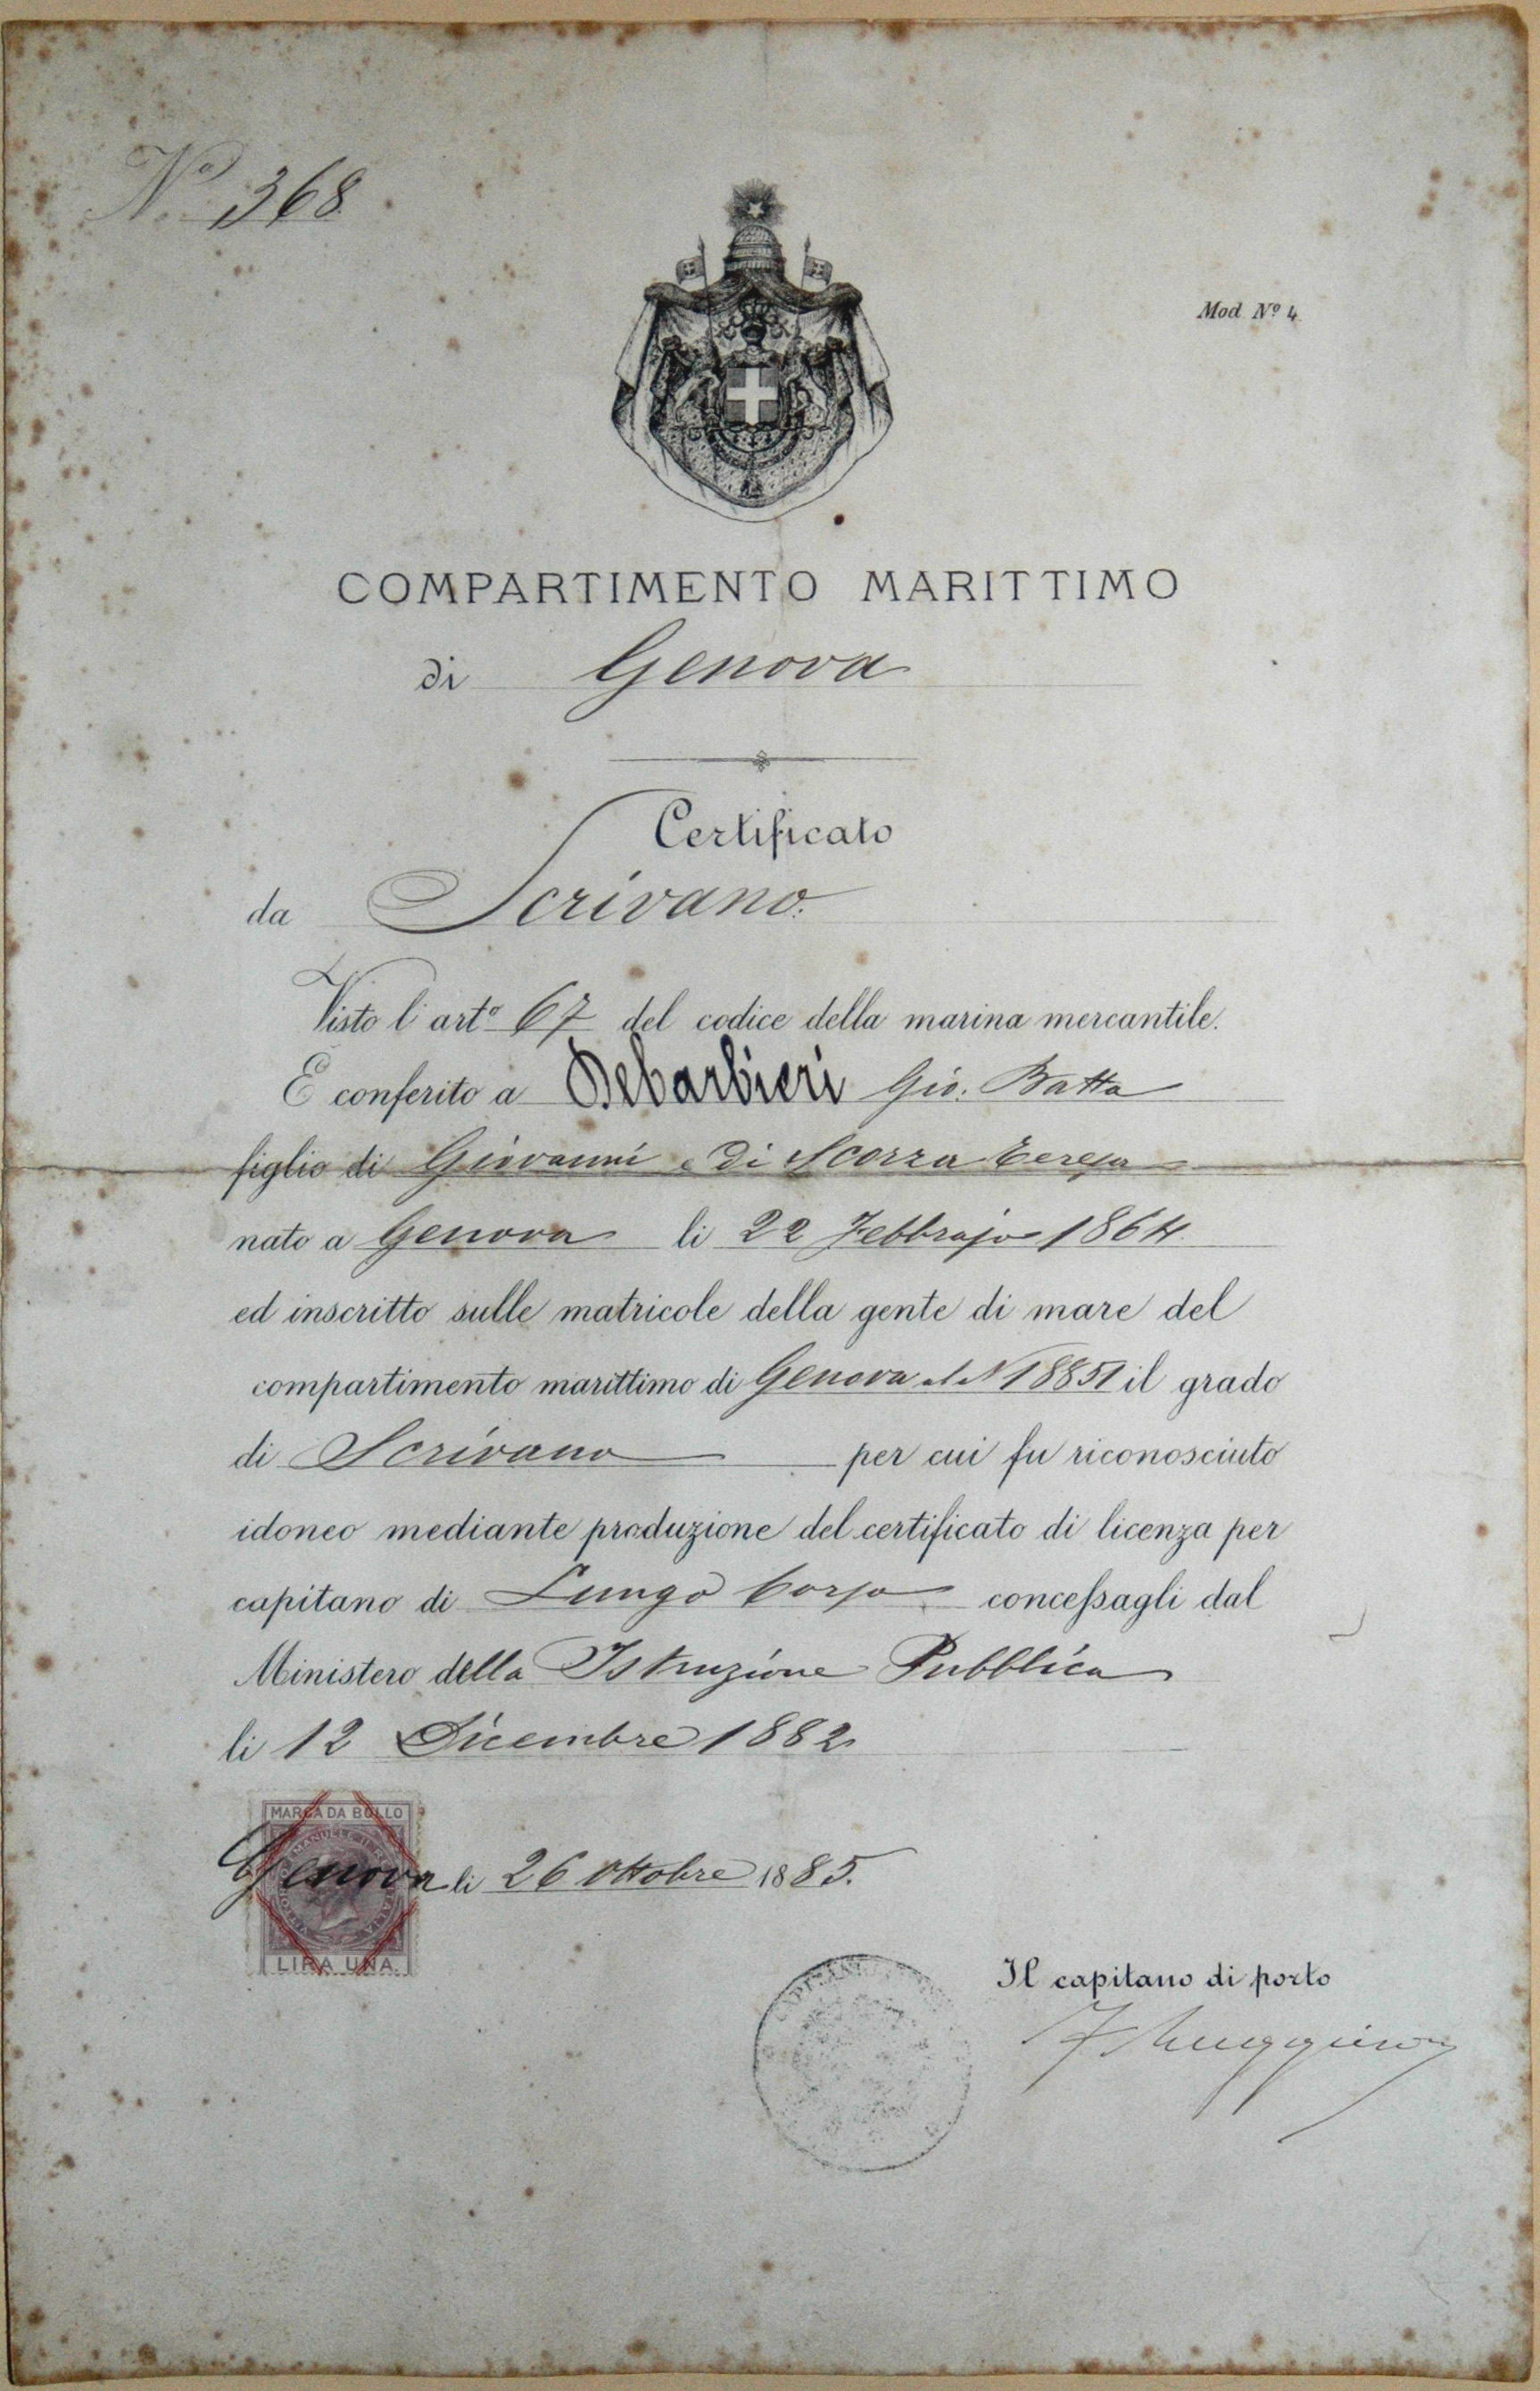 Nº 368
Mod Nº 4
COMPARTIMENTO MARITTIMO
di Genova
Certificato
da Scrivano.
Visto l'artº 67 del codice della marina mercantile.
È conferito a Debarbieri Gio: Batta
figlio di Giovanni e di Scorza Teresa
nato a Genova li 22 Febbrajo 1864
ed inscritto sulle matricole della gente di mare del
compartimento marittimo di Genova al N 18851 il grado
di Scrivano per cui fu riconosciuto
idoneo mediante produzione del certificato di licenza per
capitano di Lungo Corso concessagli dal
Ministero della Istruzione Pubblica
li 12 Dicembre 1882
MARCA DA BOLLO
Genova li 26 Ottobre 1885.
LIRA UNA.
Il capitano di porto